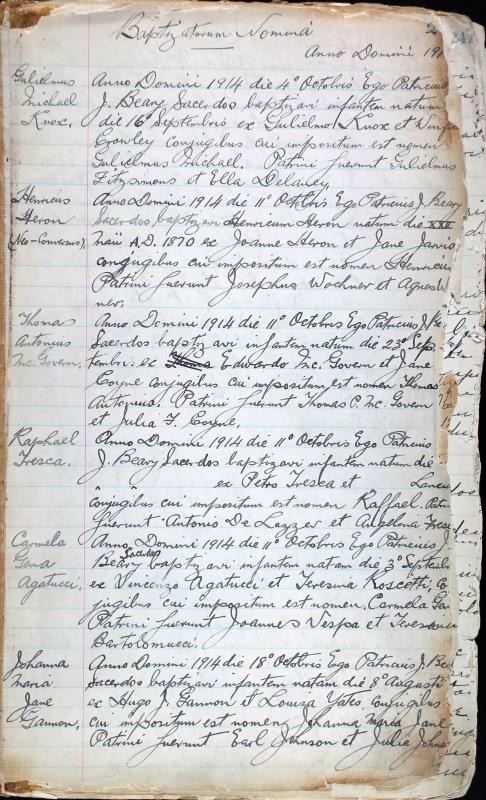 Baptizatorum Nomina
Anno Domini 19
Gulielmus
Michael
Knox.
Anno Domini 1914 die 4° Octobris Ego Patricius
J. Beary Sacerdos baptizavi infantem natum
die 16° Septembris ex Gulielmo Knox et
Crowley conjugibus cui impositum est nomen
Gulielmus Michael. Patrini fuerunt Gulielmus
Fitzsimens et Ella Delaney.
Henricus
Heron
(Neo-Conversus),
Anno Domini 1914 die 11° Octobris Ego Patricius J. Beary
Sacerdos baptizavi Henricum Heron natum die XXII
Maii A.D. 1870 ex Joanne Heron et Jane Jarvis
conjugibus cui impositum est nomen Henricus
Patrini fuerunt Josephus Wochner et Agnes W
ner.
Thomas
Antonius
Mc. Govern.
Anno Domini 1914 die 11° Octobris Ego Patricius J. Be
Sacerdos baptizavi infantem natum die 23° Sep
tembris ex Edwardo Mc. Govern et Jane
Coyne conjugibus cui impositum est nomen Thomas
Antonius. Patrini fuerunt Thomas C. Mc. Govern
et Julia F. Coyne.
Raphael
Tresca.
Anno Domini 1914 die 11° Octobris Ego Patricius
J. Beary Sacerdos baptizavi infantem natum die
ex Petro Tresca et
conjugibus cui impositum est nomen Raffael. Patri
fuerunt Antonio De Lazzer et Angelina Tresc
Carmela
Gena
Agatucci.
Anno Domini 1914 die 11° Octobris Ego Patricius J
Beary Sacerdos baptizavi infantem natam die 3° Septemb
ex Vincenzo Agatucci et Teresina Roscetti, co
jugibus cui impositum est nomen Carmela Gen
Patrini fuerunt Joannes Vespa et Teresa
Bartolomucci.
Johanna
Maria
Jane
Gannon.
Anno Domini 1914 die 18° Octobris Ego Patricius J. Bea
Sacerdos baptizavi infantem natam die 8° Augusti
ex Hugo J. Gannon et Louisa Yates, conjugibus
cui impositum est nomen Johanna Maria Jane
Patrini fuerunt Earl Johnson et Julia Johns